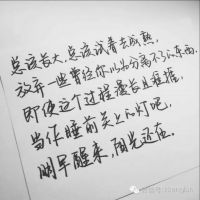 总该长大,总该试着去成熟,
放弃一些曾经你以为分离不了的东西.
即使这个过程漫长且
当作睡前关上心灯吧,
明早醒来,阳光还在.
微信号: